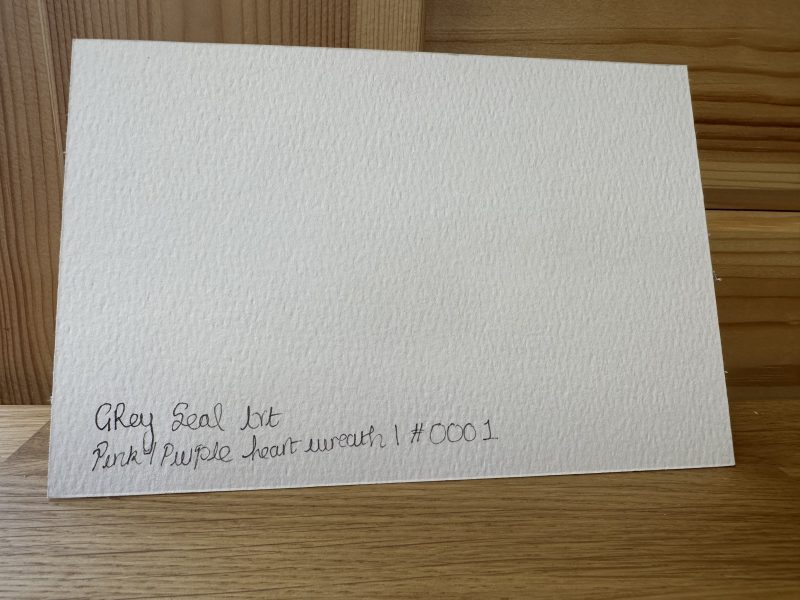 GRey Seal Art
Pink / Purple heart wreath | #0001